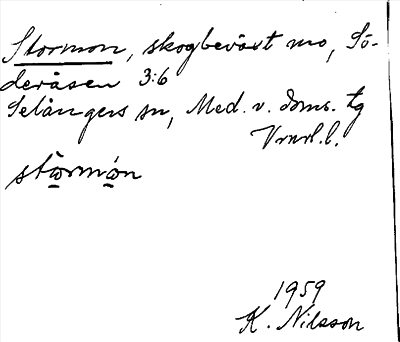 Stormon, skogbeväxt mo, Sö-
deråsen 3:6
Selångers sn, Med. v. doms. tg
Vnrl. l.
stårmón
1959
K. Nilsson